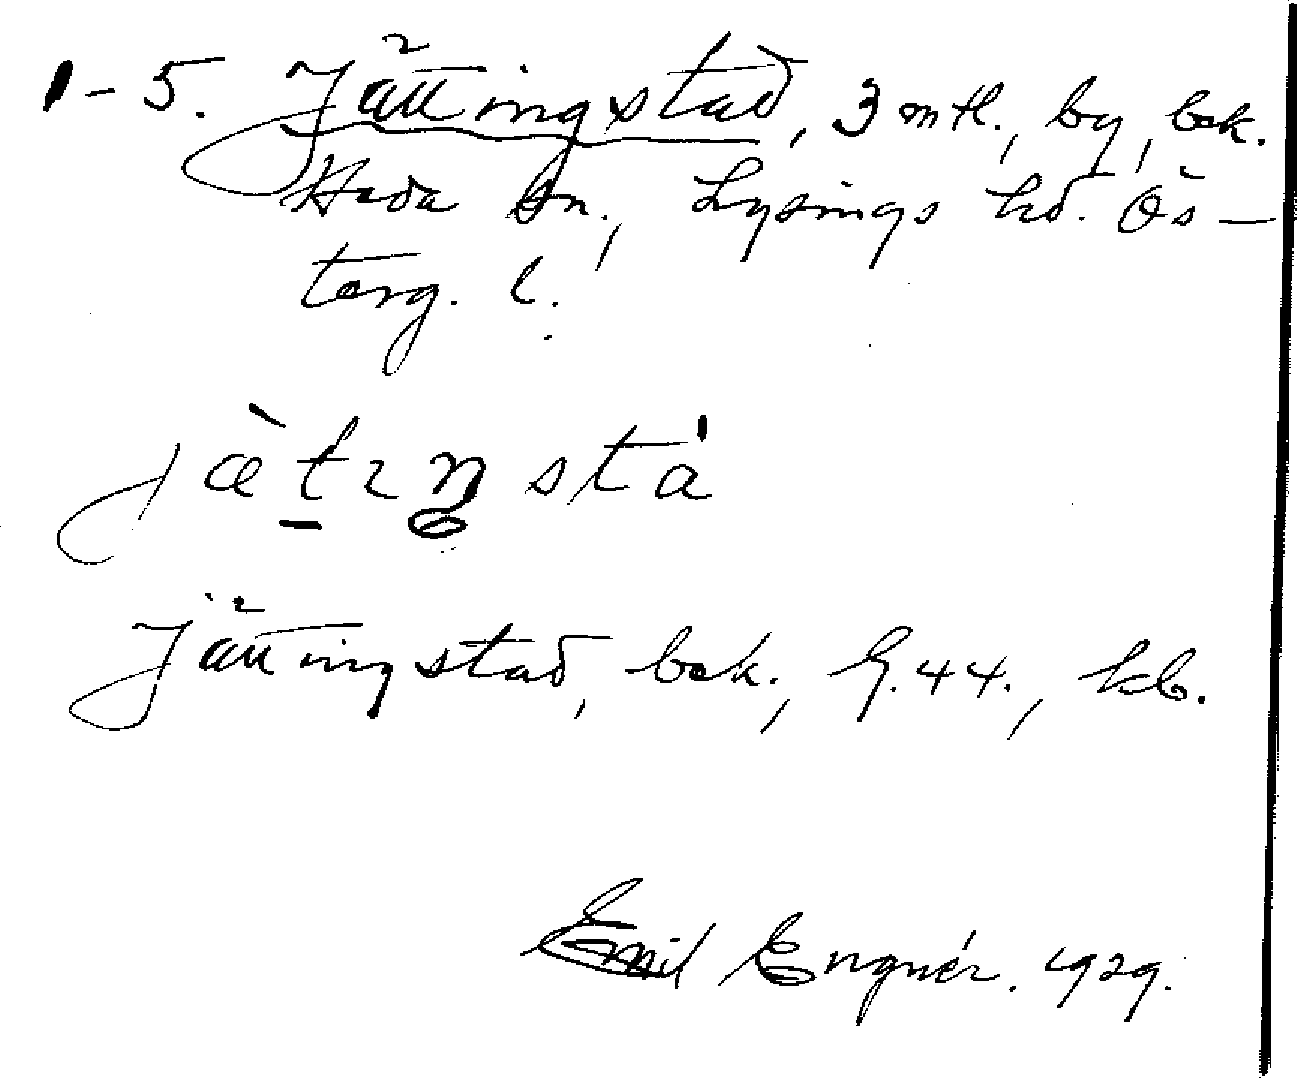 1-5. Jättingstad, 3 mtl., by, bek.
Heda sn., Lysings hd. Ös-
terg. l.
jätıŋsta
Jättingstad, bek., G. 44., kb.
Emil Engnér. 1929.